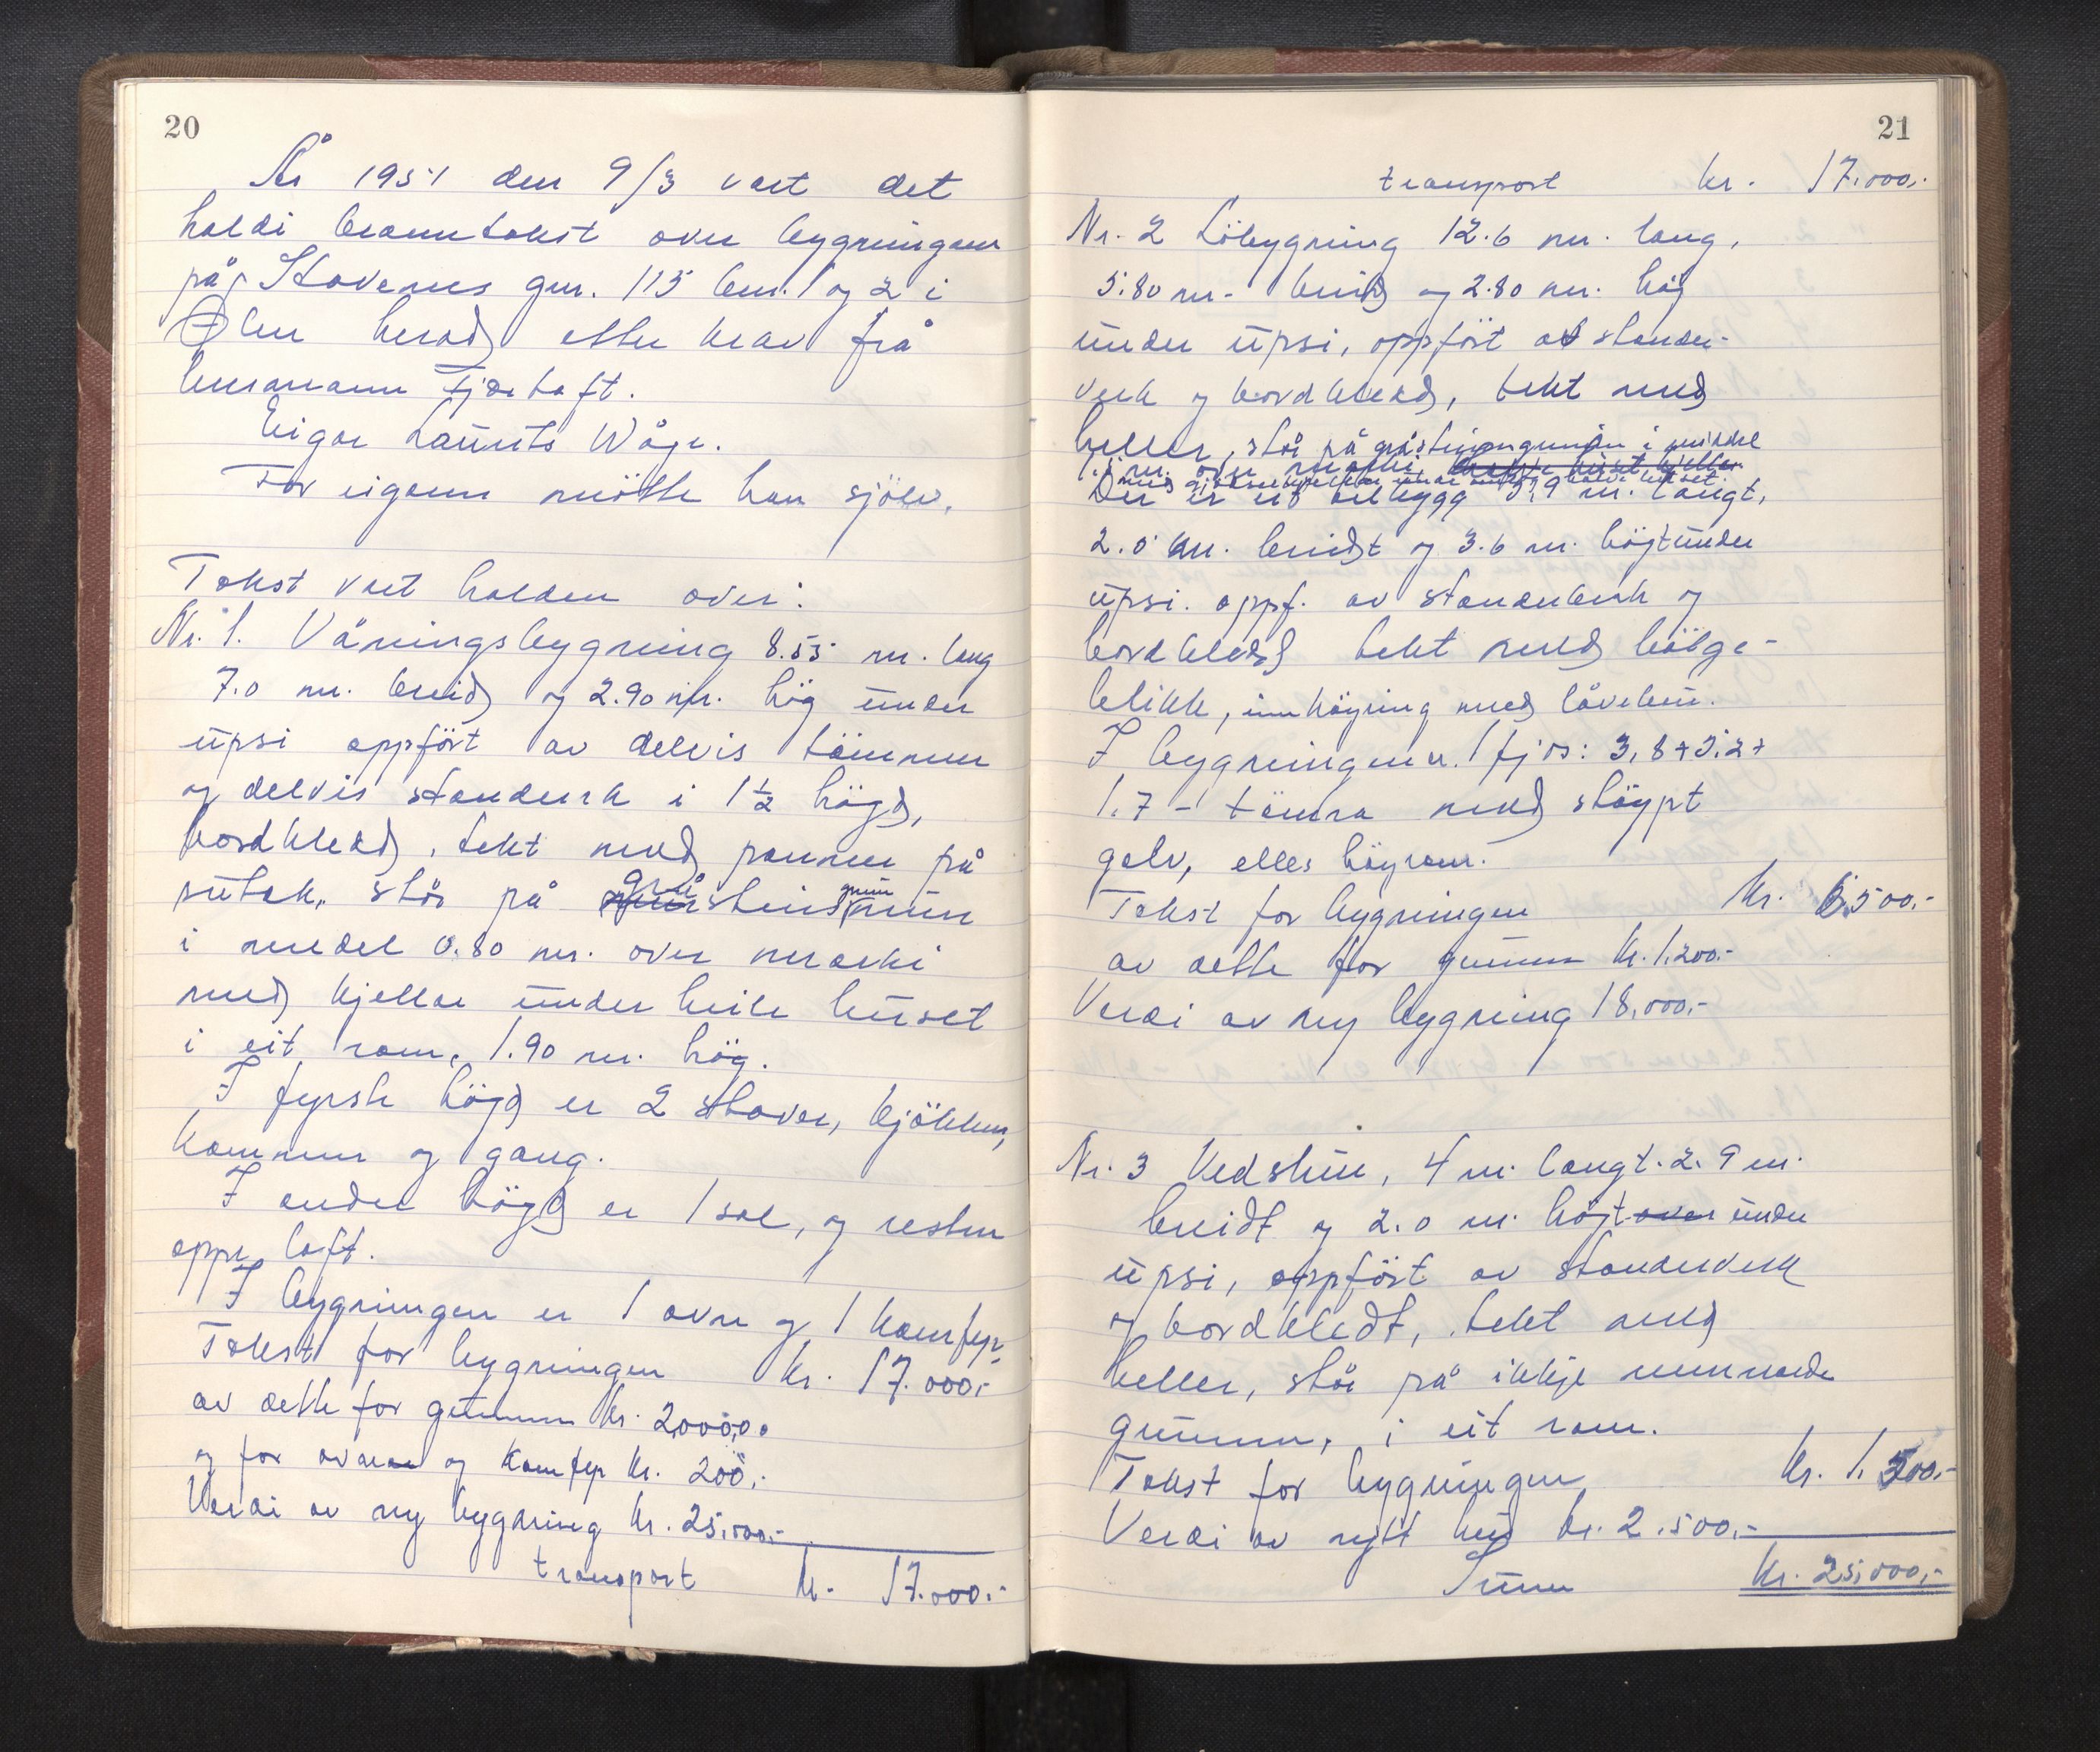 20
År 1951 den 9/3 vart det
haldi branntakst over bygningane
på Stavenes gnr. 115 bnr. 1 og 2 i
Ølen herad etter krav frå
lensmann Tjørhoft.
Eigar Laurits Våge.
For eigaren møtte han sjölv.
Takst vart halden over:
Nr. 1. Våningsbygning 8.55 m. lang
7.0 m. breid og 2.90 m. hög under
upsi oppfört av delvis tömmer
og delvis standverk i 1½ högd,
bordkledd, tekt med panner på
sutak, står på gråsteinsgrunnmur
i medel 0.80 m. over marki
med kjellar under heile huset
i eit rom, 1.90 m. hög.
I fyrste högd er 2 stover, kjökken,
kammer og gang.
I andre högd er 1 sal, og resten
ope loft.
I bygningen er 1 omn og 1 komfyr.
Takst for bygningen kr. 17.000.-
av dette for grunnen kr. 2000,00
og for omnen og komfyr kr. 200.-
Verdi av ny bygning kr. 25.000.-
transport kr. 17.000.-
21
transport kr. 17.000,-
Nr. 2 Löbygning 12.6 m. lang,
5.80 m. breid og 2.80 m. hög
under upsi, oppfört av stander-
verk og bordkledd, tekt med
heller, står på gråsteinsgrunn i middel
m. over marki,
med gjödselkjellar under halve huset.
Der er eit tilbygg 5.9 m. langt,
2.0 m. breidt og 3.6 m. högt under
upsi. oppf. av standverk og
bordkledd tekt med bölge-
blikk, innköyring med låvebru.
I bygningen er 1 fjös: 3,8 + 5.2 +
1.7 - tömra med stöypt
golv, elles höyrom.
Takst for bygningen kr. 6.500.-
av dette for grunnen kr. 1.200.-
Verdi av ny bygning 18.000.-
Nr. 3 Vedskur, 4 m. langt. 2.9 m.
breidt og 2.0 m. högt over under
upsi, oppfört av standerverk
og bordkledt, tekt med
heller, står på ikkje nemnande
grunnen, i eit rom.
Takst for bygningen kr. 1.500.-
Verdi av nytt hus kr. 2.500.-
Sum kr. 25.000.-